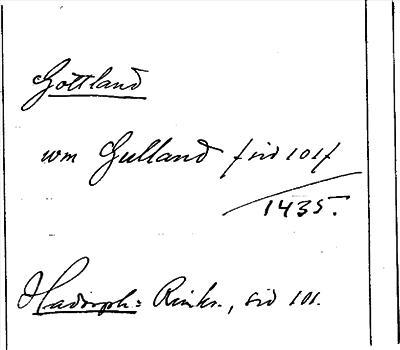 Gottland
um Gulland /sid 101/
1435.
Hadorph: Rimkr., sid 101.